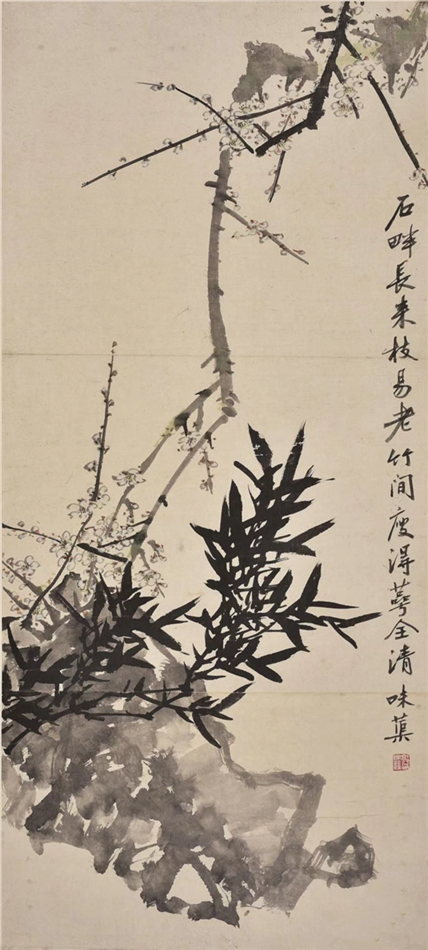 石畔長来枝易老竹间瘦得蕚全清味蕖